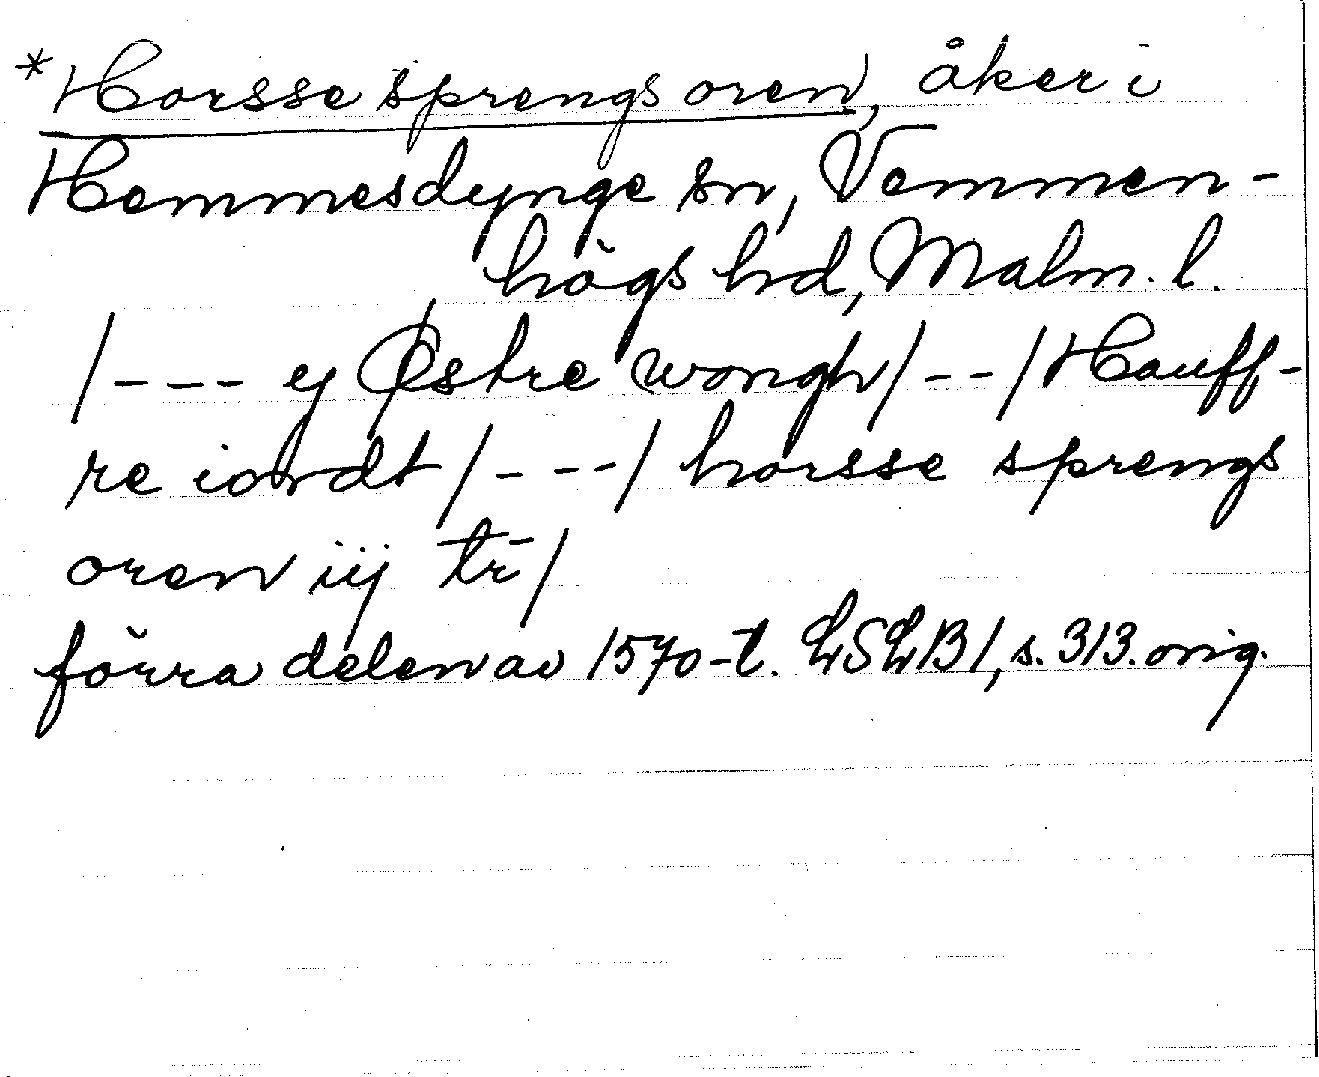 *Horsse sprengs oren, åker i
Hemmesdynge sn, Vemmen-
högs hd, Malm. l.
/--- ij Østre wongh/--/Hauff-
re iordt/---/ horsse sprengs
oren iij tr̄/
förra delen av 1570-t. LSLB1, s. 313. orig.